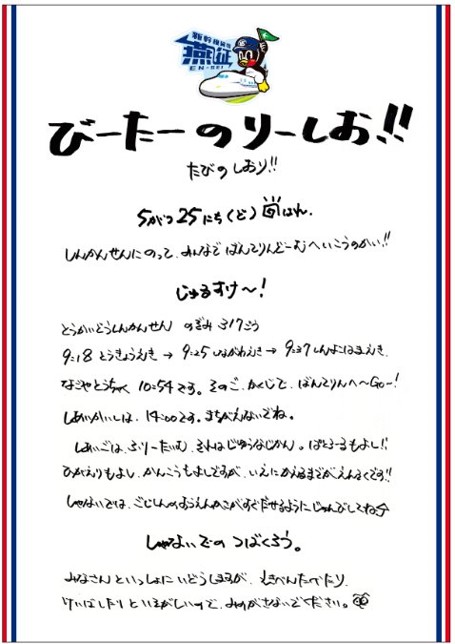 新幹線
燕征
EN-SEI
びーたーのりーしお!!
たびのしおり!!
5がつ25にち(ど)
しんかんせんにのって、みんなでばんてりんどーむへいこうのかい!!
じゅるすけ〜!
とうかいどうしんかんせん のぞみ317ごう
9:18 とうきょうえき → 9:25 しながわえき → 9:37 しんよこはまえき、
なごやとうちゃく 10:54です。そのご、かくじで、ばんてりんへ〜Go-!
しあいかいしは、14:00です。まちがえないでね。
しあいごは、ふりーたいむ、それはじゆうなじかん。ぱとろーるもよし!!
ひがえりもよし、かんこうもよしですが、いえにかえるまでがえんそくです!!
しゃないでは、ごじしんのおうえんかさがすぐだせるようにじゅんびしてね
しゃないでのつばくろう。
みなさんといっしょにいどうしますが、えきべんたべたり、
けいばしたりといそがしいので、みのがさないでください。